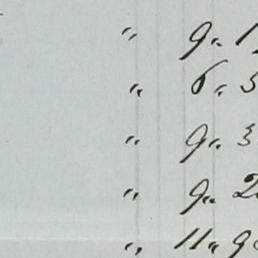 „ 9„ 1
„ 6„ 3
„ 9„ 3
„ 9„ 2
„ 11„ 9